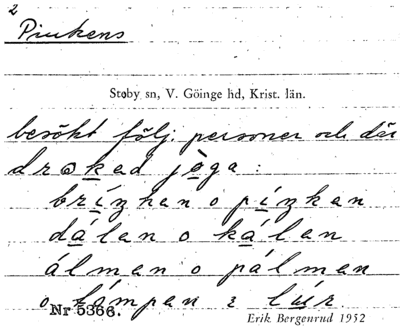 2
Pinkens
Stoby sn, V. Göinge hd, Krist. län.
besökt följ. personer och där
drọkad jòga:
brízkan o pízkan
dálan o kálan
álman o pálman
o kámpan i
Nr 5366.
Erik Bergenrud 1952